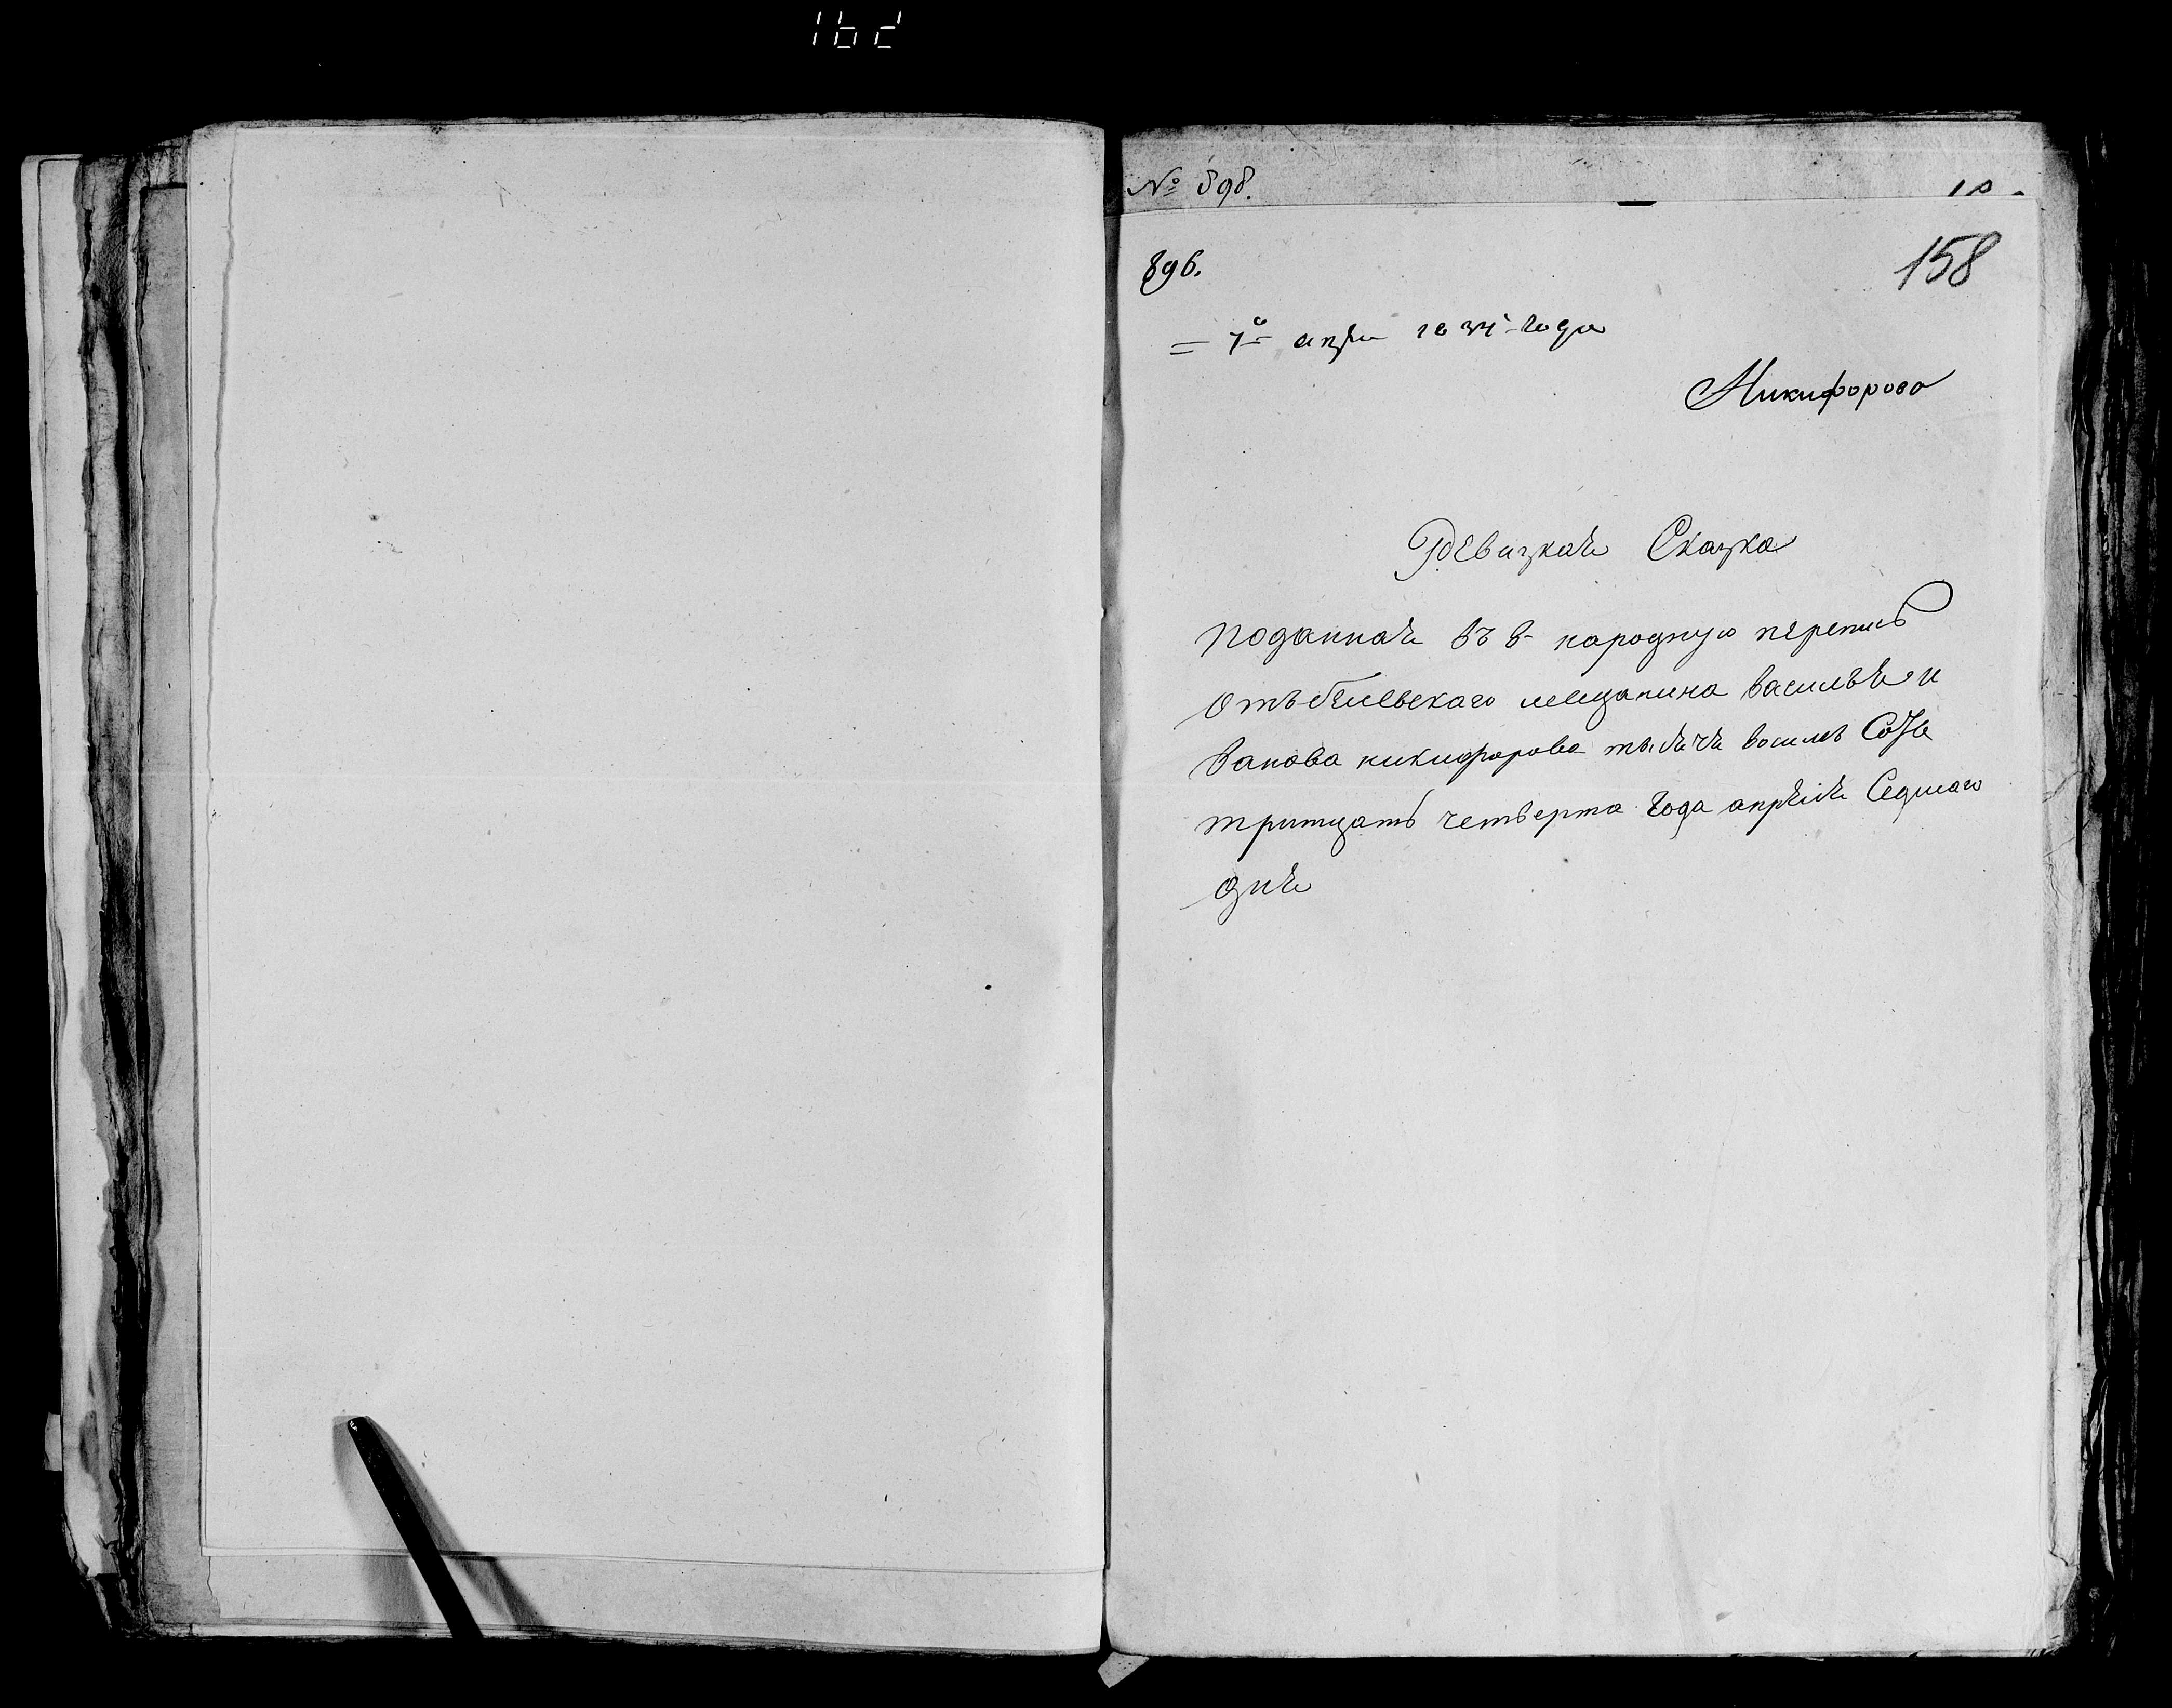 162
№ 898.
896.
158
= 7го апре 1834 года
Никифорова
Ревизкая Сказка
поданная въ 8 народную перепись
отъ белевскаго мещанина василья и
ванова никифорова тысяча восимь Соть
тритцать четверта года апреля Седмаго
дня